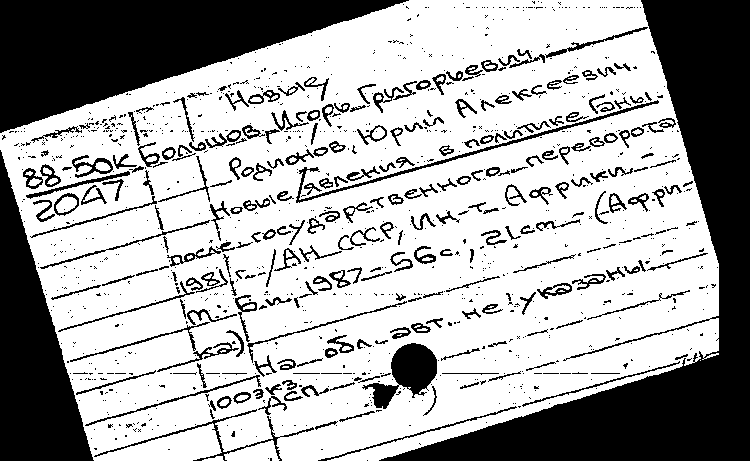 Новые
88-50К Большов, Игорь Григорьевич,
2047 Родионов, Юрий Алексеевич.
Новые явления в политике Ганы
после государственного переворота
1981 г. / АН СССР, Ин-т Африки. -
М.: Б.и., 1987 - 56 с.; 21 см - (Афри-
ка.)
На обл. авт. не указаны. -
100 экз.
ДСП